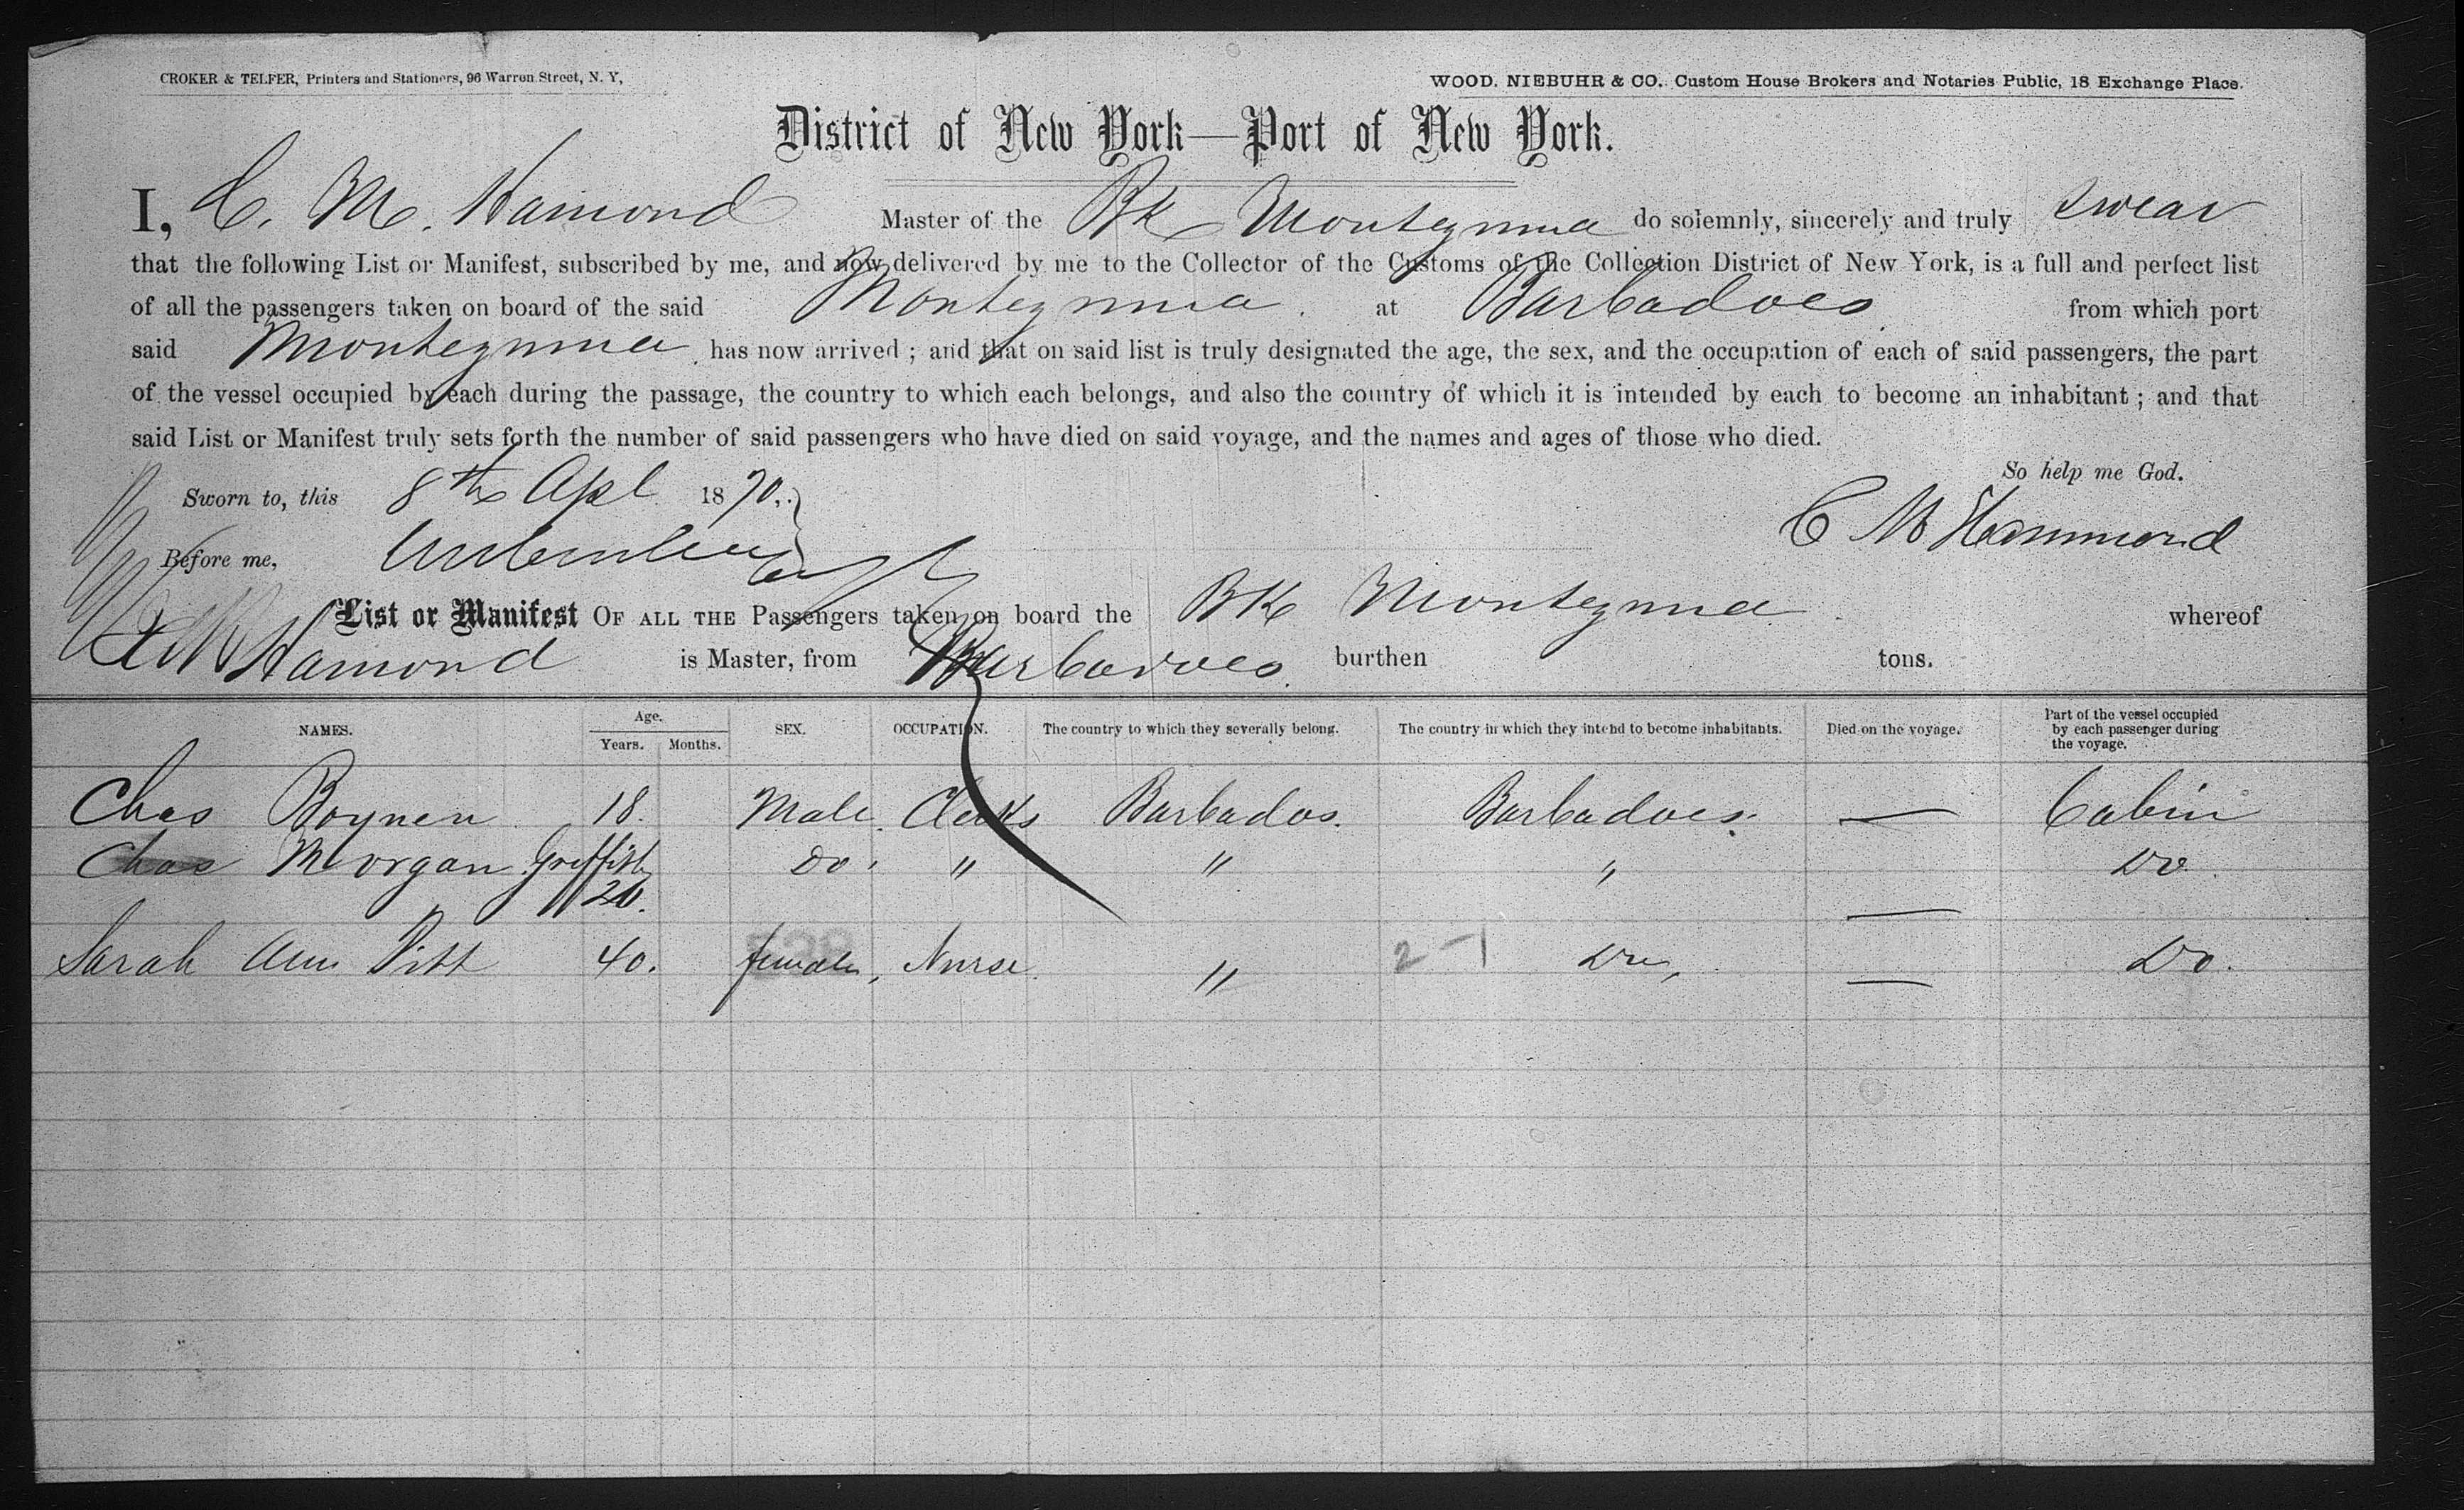 CROKER & TELFER, Printers and Stationers, 96 Warren Street, N. Y,
WOOD, NIEBUHR & CO., Custom House Brokers and Notaries Public, 18 Exchange Place.
District of New York—Port of New York.
I, C. M. Hamond Master of the Bk Montezuma do solemnly, sincerely and truly swear
that the following List or Manifest, subscribed by me, and now delivered by me to the Collector of the Customs of the Collection District of New York, is a full and perfect list
of all the passengers taken on board of the said Montezuma. at Barbadoes from which port
said Montezuma has now arrived ; and that on said list is truly designated the age, the sex, and the occupation of each of said passengers, the part
of the vessel occupied by each during the passage, the country to which each belongs, and also the country of which it is intended by each to become an inhabitant ; and that
said List or Manifest truly sets forth the number of said passengers who have died on said voyage, and the names and ages of those who died.
So help me God.
Sworn to, this 8th Apl 1870.
C M Hammond
Before me,
List or Manifest OF ALL THE Passengers taken on board the Bk Montezuma whereof
C M Hamond is Master, from Barbadoes. burthen tons.
NAMES. Age. Years. Months. SEX. OCCUPATION. The country to which they severally belong. The country in which they intend to become inhabitants. Died on the voyage. Part of the vessel occupied by each passenger during the voyage.
Chas 18. Male. Clerks Barbados. Barbadoes. — Cabin
Chas Morgan Griffith Do. " " " Do.
20. —
Sarah Ann Pitt 40. female, Nurse. " 2 - 1 Do, — Do.